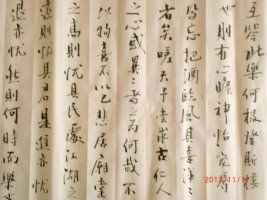 互答此樂何極登斯樓
則有心曠神怡寵
皆忘把酒臨風其喜洋洋
者矣嗟夫予嘗求古仁人
之心或異二者之為何哉不
以物喜不以己悲居廟堂
之高則憂其民處江湖之
遠則憂其君是進亦憂
退亦憂然則何時而樂